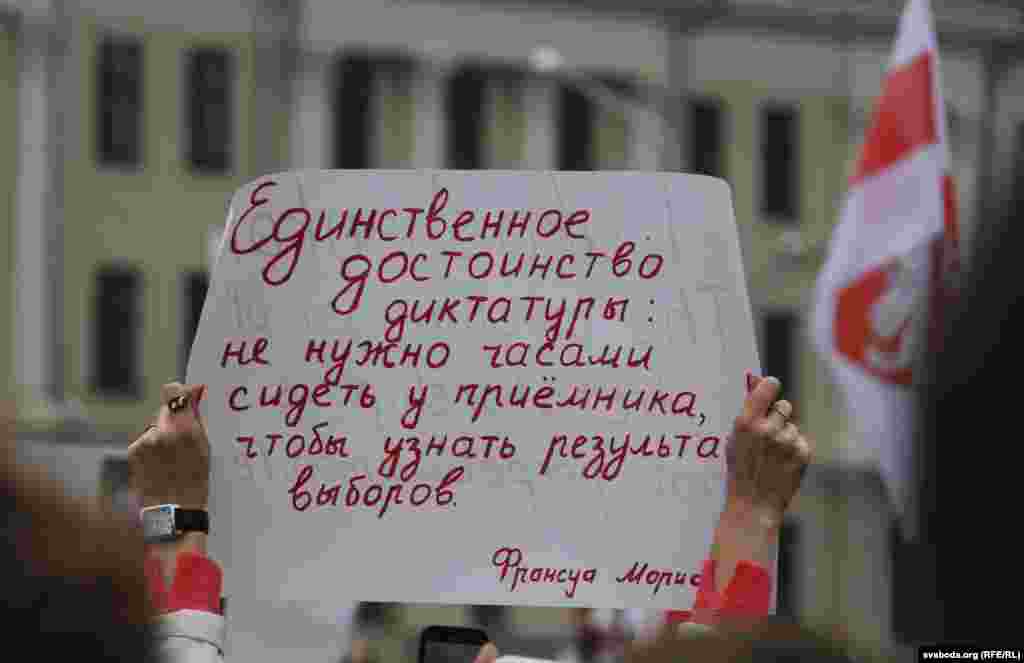 Единственное
достоинство
диктатуры:
не нужно часами
сидеть у приёмника,
чтобы узнать результа
выборов.
Франсуа Морис
svaboda.org (RFE/RL)